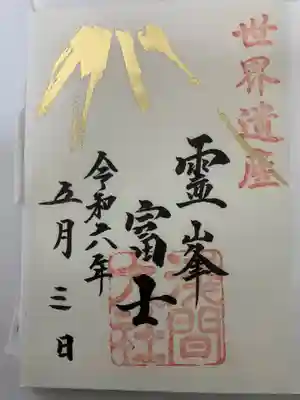 世界遺産
霊峯
富士
浅間
大社
令和六年
五月三日